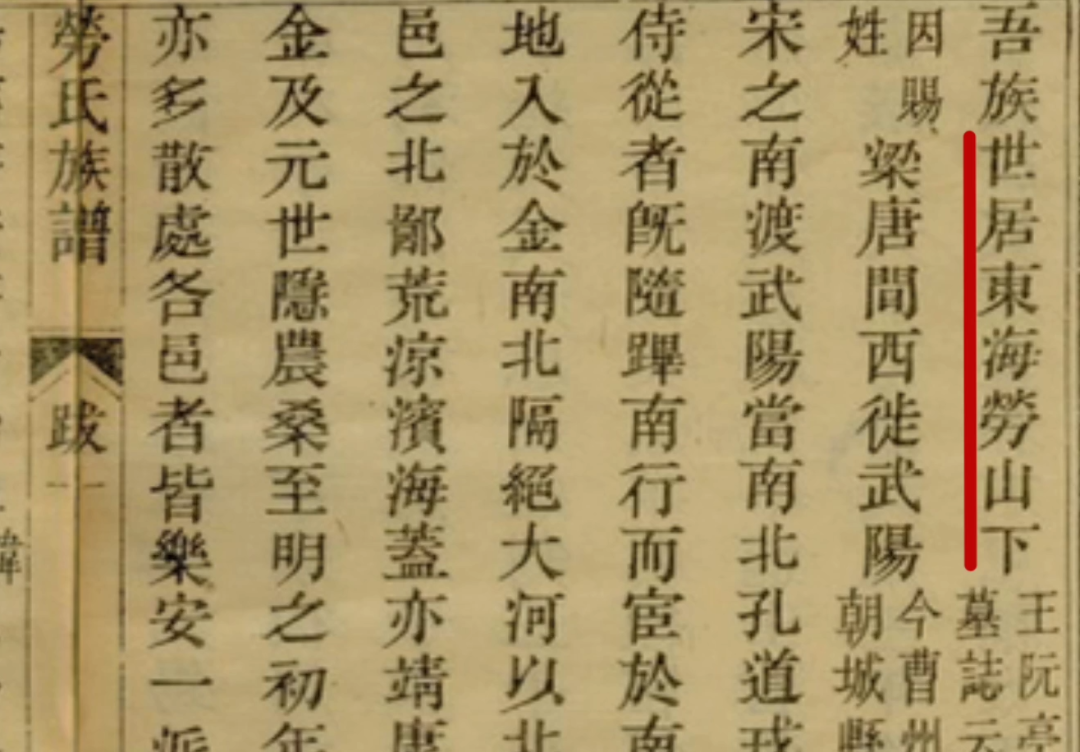 吾族世居東海勞山下
王阮亭
墓誌元
因賜
姓
梁唐間西徙武陽
今曹州
朝城縣
宋之南渡武陽當南北孔道戎
侍從者旣隨蹕南行而宦於南
地入於金南北隔絕大河以北
邑之北鄙荒涼濱海蓋亦靖康
金及元世隱農桑至明之初年
亦多散處各邑者皆樂安一派
勞氏族譜
跋
一